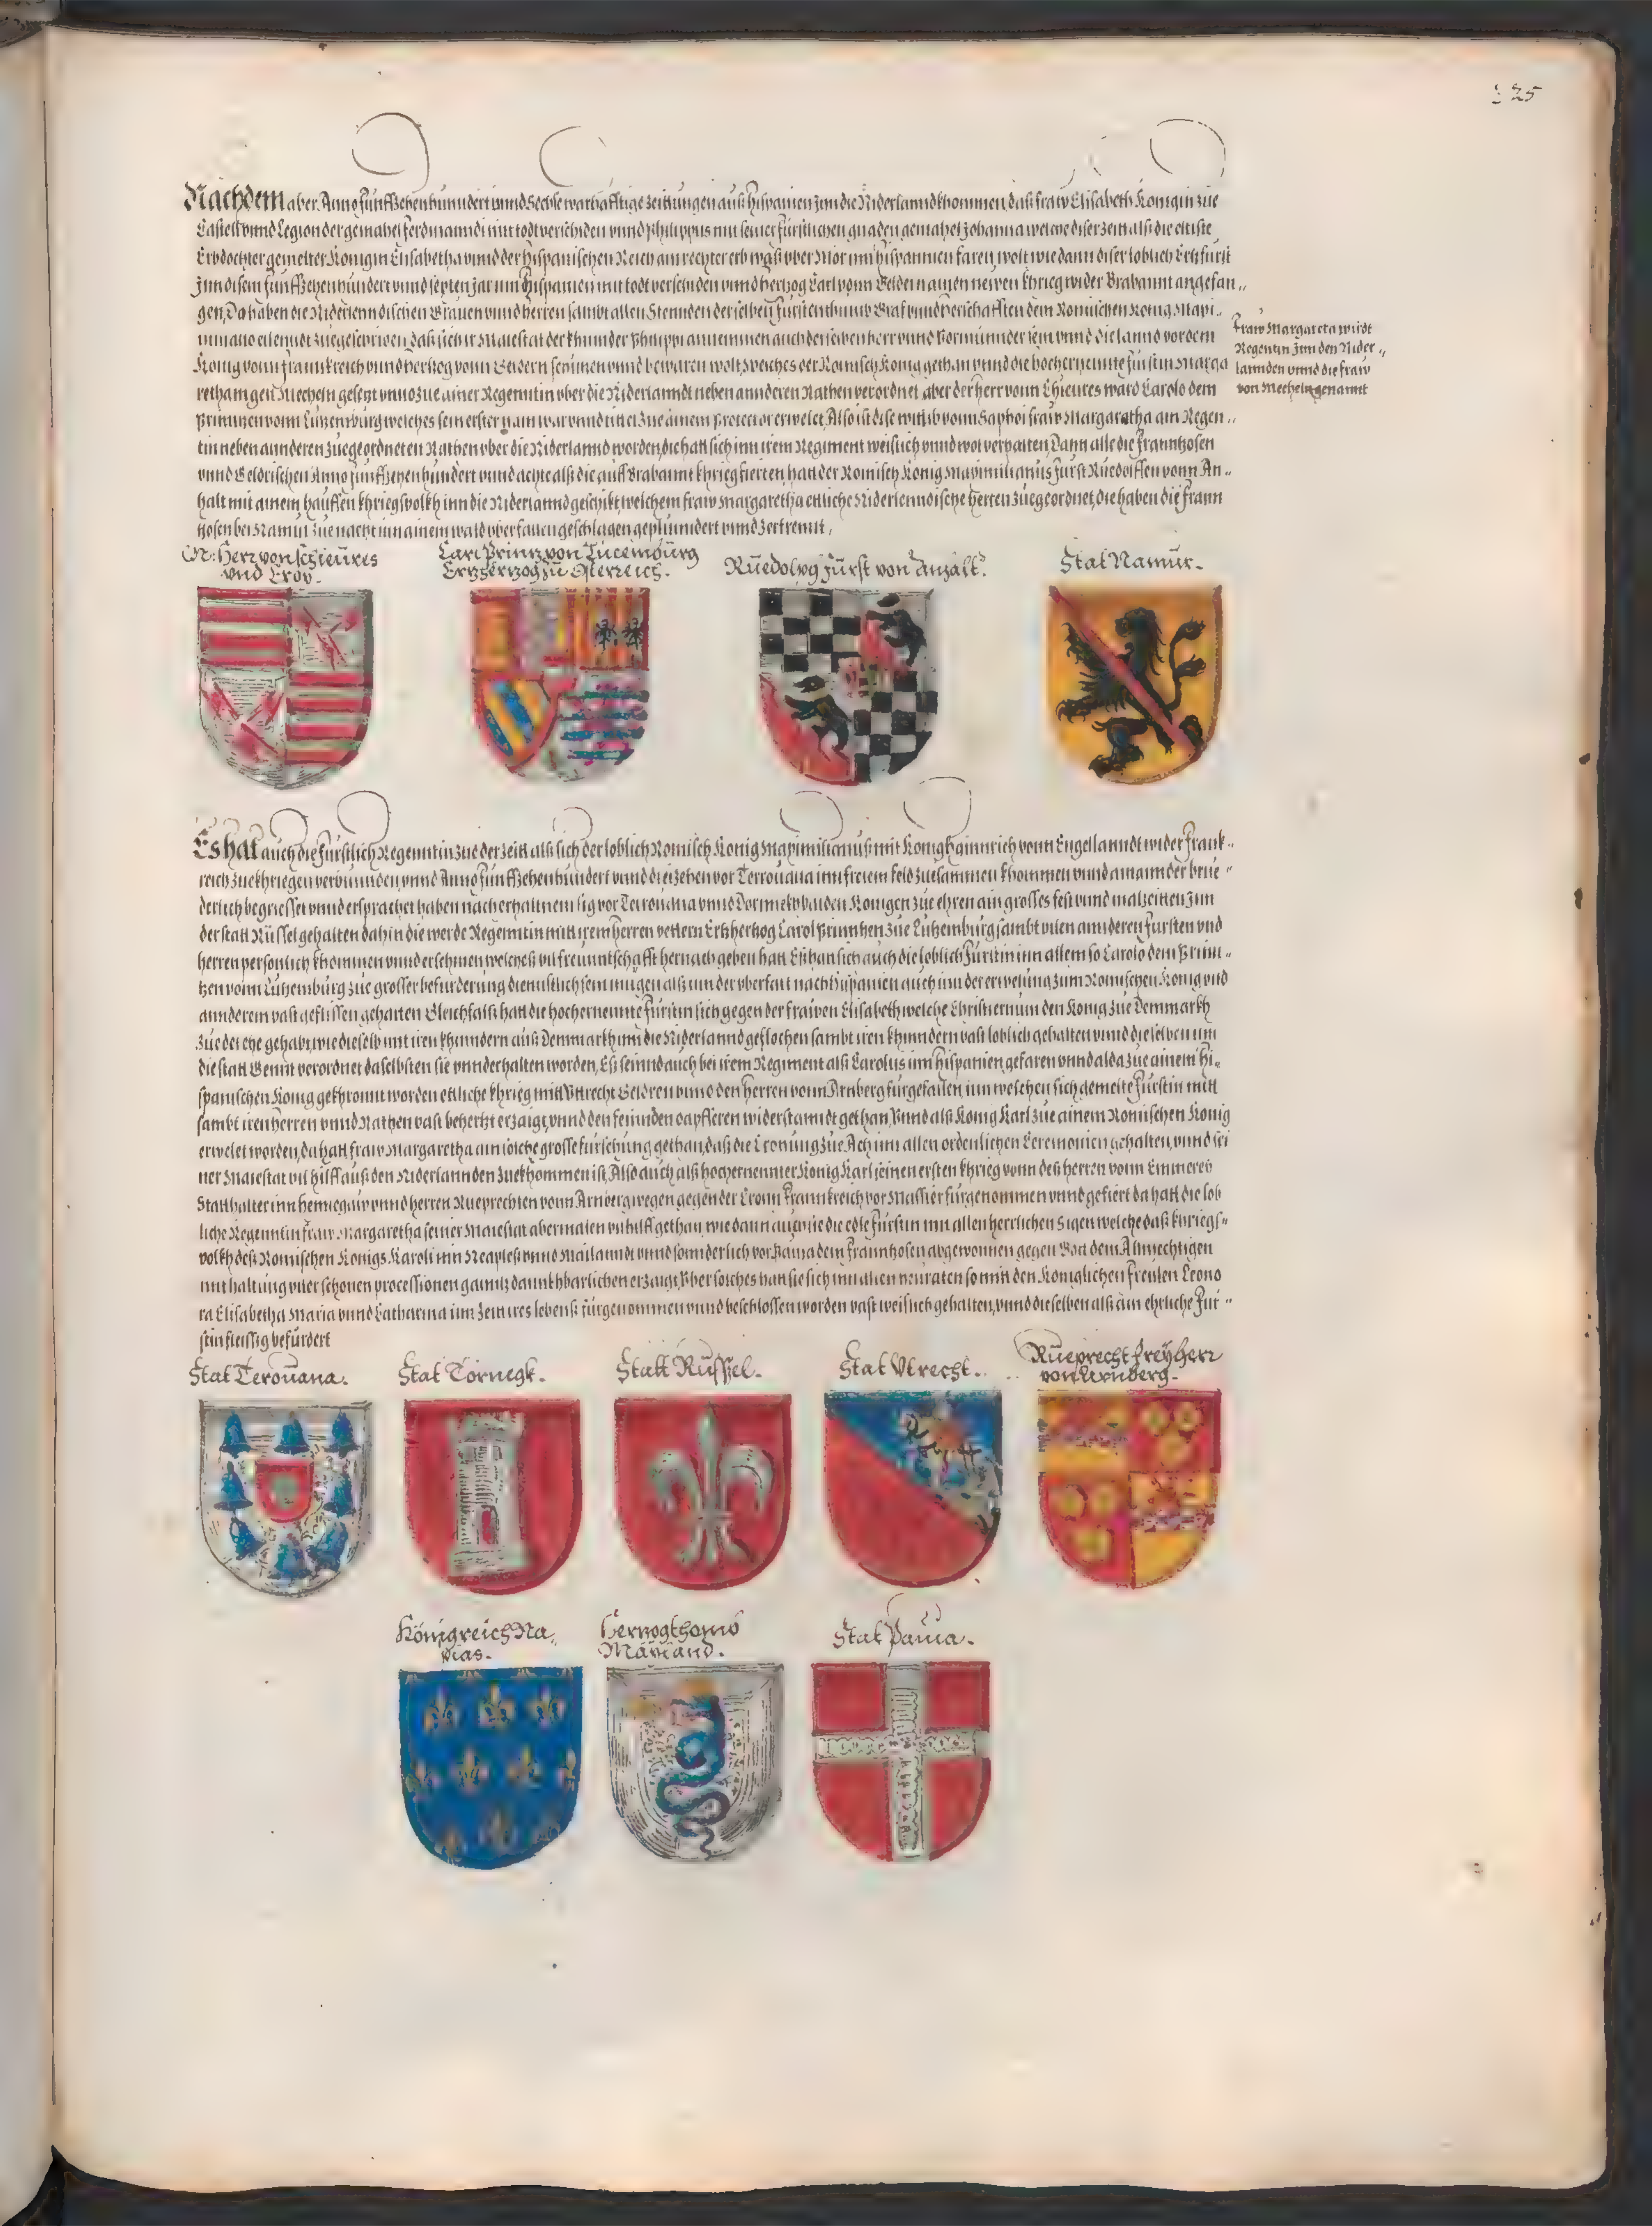 225
Nachdem aber Anno fünffzehenhundert unnd Sechse warhafftige zeittungen auß Hispanien inn die Niderlandt khommen, daß fraw Elisabeth Königin zue
Castell unnd Legion der gemahel Ferdinanndi mit todt verschiden unnd Philippus mit seiner fürstlichen gnaden gemahel Johanna welche diser zeit alß die eltiste
Erbdochter gemelter Königin Elisabetha unnd der Hispanischen Reich ain rechter erb waß uber Mör inn Hispannien faren, wolt wie dann diser loblich Ertzfürst
Inn disem fünffzehenhundert unnd septen jar inn Hispanien mit todt verschiden unnd Hertzog Carl vonn Geldern ainen newen khrieg wider Brabannt angefan„
gen, Da haben die Niderlenndischen Frauen unnd herren sambt allen Stennden derselben Fürstenthumb Graf unnd Herschafften dem Romischen König Maxi„
miliano eilenndt zuegeschriben, daß sich ir Maiestat der khinnder Philippi annemmen auch derselben herr unnd Vormünnder sein unnd die lannd vor dem
König vonn Frannkreich unnd hertzog vonn Geldern schirmen unnd bewaren wolt, welches der Romisch König gethan unnd die hochernennte Fürstin Marga
retham gen Mecheln gesetzt unnd zue ainer Regenntin uber die Niderlanndt neben annderen Rathen verordnet aber der herr vonn Chieures ward Carolo dem
Printzen vonn Lützenburg welches sein erster nam war unnd titel zue ainem protector erwelet, Also ist dise wittib vonn Saphoi fraw Margaretha ain Regen„
tin neben annderen zuegeordneten Rathen uber die Niderlannd worden, die hatt sich inn irem Regiment weislich unnd wol verhalten, Dann alß die Frannhosen
unnd Geldrischen Anno fünffzehenhundert unnd achte alß die auff Brabannt khriegsierten hatt der Romisch König Maximilianus Fürst Ruedolffen vonn An„
halt mit ainem hauffen khriegsvolkh inn die Niderlannd geschikt, welchem fraw Margaretha ettliche Niderlenndische herren zuegeordnet, die haben die Frann
hosen bei Namur zue nacht inn ainem wald uberfallen geschlagen geplünndert unnd zertrennt,
Fraw Margareta wirdt
Regentin Inn den Nider„
lannden unnd die fraw
von Mecheln genannt
N: Herr von Schieures
vnd Croy.
Carl Printz von Lucembürg
Ertzhertzog zu Osterreich.
Ruedolph Fürst von Anhalt.
Stat Namur.
Es hat auch die Fürstlich Regenntin zue der zeitt alß sich der loblich Romisch König Maximilianus mit König Hainnrich vonn Engellanndt wider Frank„
reich zue khriegen verbunnden, unnd Anno fünffzehenhundert unnd dreizehen vor Terrouana inn freiem feld zusammen khommen unnd ainannder brue„
derlich begriesset unnd ersprachet haben nach erhaltnem sig vor Terrouana unnd Dornnekh baiden Königen zue ehren ain grosses fest unnd malzeitten inn
der statt Rüssel gehalten dahin die werde Regenntin mitt irem herren vettern Ertzhertzog Carol Printzen zue Lützemburg sambt vilen annderen Fürsten vnd
herren personlich khommen unnd erschinen, welches vil freunntschafft hernach geben hatt Es han sich auch die loblich Fürstin inn allem so Carolo dem Prinn„
tzen vonn Lützemburg zue grosser befürderung dienstlich sein mügen alß inn der uberfart nach Hispanien auch inn der erwelung zum Romischen König vnd
annderem vast geflissen gehalten Gleichfalß hatt die hochernennte Fürstin sich gegen der frauwen Elisabeth welche Christiernum den König zue Denmarkh
zue der ehe gehabt, wie dieselb mit iren khinndern auß Denmarkh inn die Niderlannd geflochen sambt iren khinndern vast loblich gehalten unnd dieselben inn
die statt Gennt verordnet daselbsten sie unnderhalten worden, Es seinnd auch bei irem Regiment alß Carolus inn Hispanien gefaren unnd alda zue ainem Hi„
spanischen König gekhronnt worden ettliche khrieg mitt Vttrecht Geldren unnd den Herren vonn Arnberg fürgefallen, inn welchen sich gemelte Fürstin mitt
sambt iren herren unnd Rathen vast behertzt erzaigt, unnd den feinnden dapfferen widerstanndt gethan, Vnnd alß König Karl zue ainem Romischen König
erwelet worden, da hatt fraw Margaretha ain solche grosse fürsehung gethan, daß die Cronung zue Ach inn allen ordenlichen Ceremonien gehalten, unnd sei
ner Maiestat vil hilff auß den Niderlannden zuekhommen ist, Also auch alß hochernennter König Karl seinen ersten khrieg vonn deß herren vonn Emmereb
Statthalter inn Hennegaw unnd herren Rueprechten vonn Arnberg wegen gegen der Cronn Frannkreich vor Massier fürgenommen unnd gefiert da hatt die lob
liche Regenntin fraw Margaretha seiner Maiestat abermalen vil hilff gethan, wie dann auch sie die edle Fürstin inn allen herrlichen Sigen welche daß khriegs„
volkh deß Romischen Königs Karoli inn Neaples unnd Mailanndt unnd sonnderlich vor Pavia dem Frannhosen abgewonnen gegen Gott dem Almechtigen
mit haltung viler schonen processionen ganntz dannkhbarlichen erzaigt, Vber solches hatt sie sich inn allen heuraten so mitt den Königlichen Freulen Leono
ra Elisabetha Maria unnd Catharina inn zeitt ires lebens fürgenommen unnd beschlossen worden vast weislich gehalten, unnd dieselben alß ain ehrliche Für„
stin fleissig befürdert
Stat Teroüana.
Stat Tornegk.
Statt Rüssel.
Stat Vtrecht.
Rueprecht Freyherr
von Arnberg.
Königreich Na„
plas.
Hertzogthomb
Mayland.
Stat Pauia.